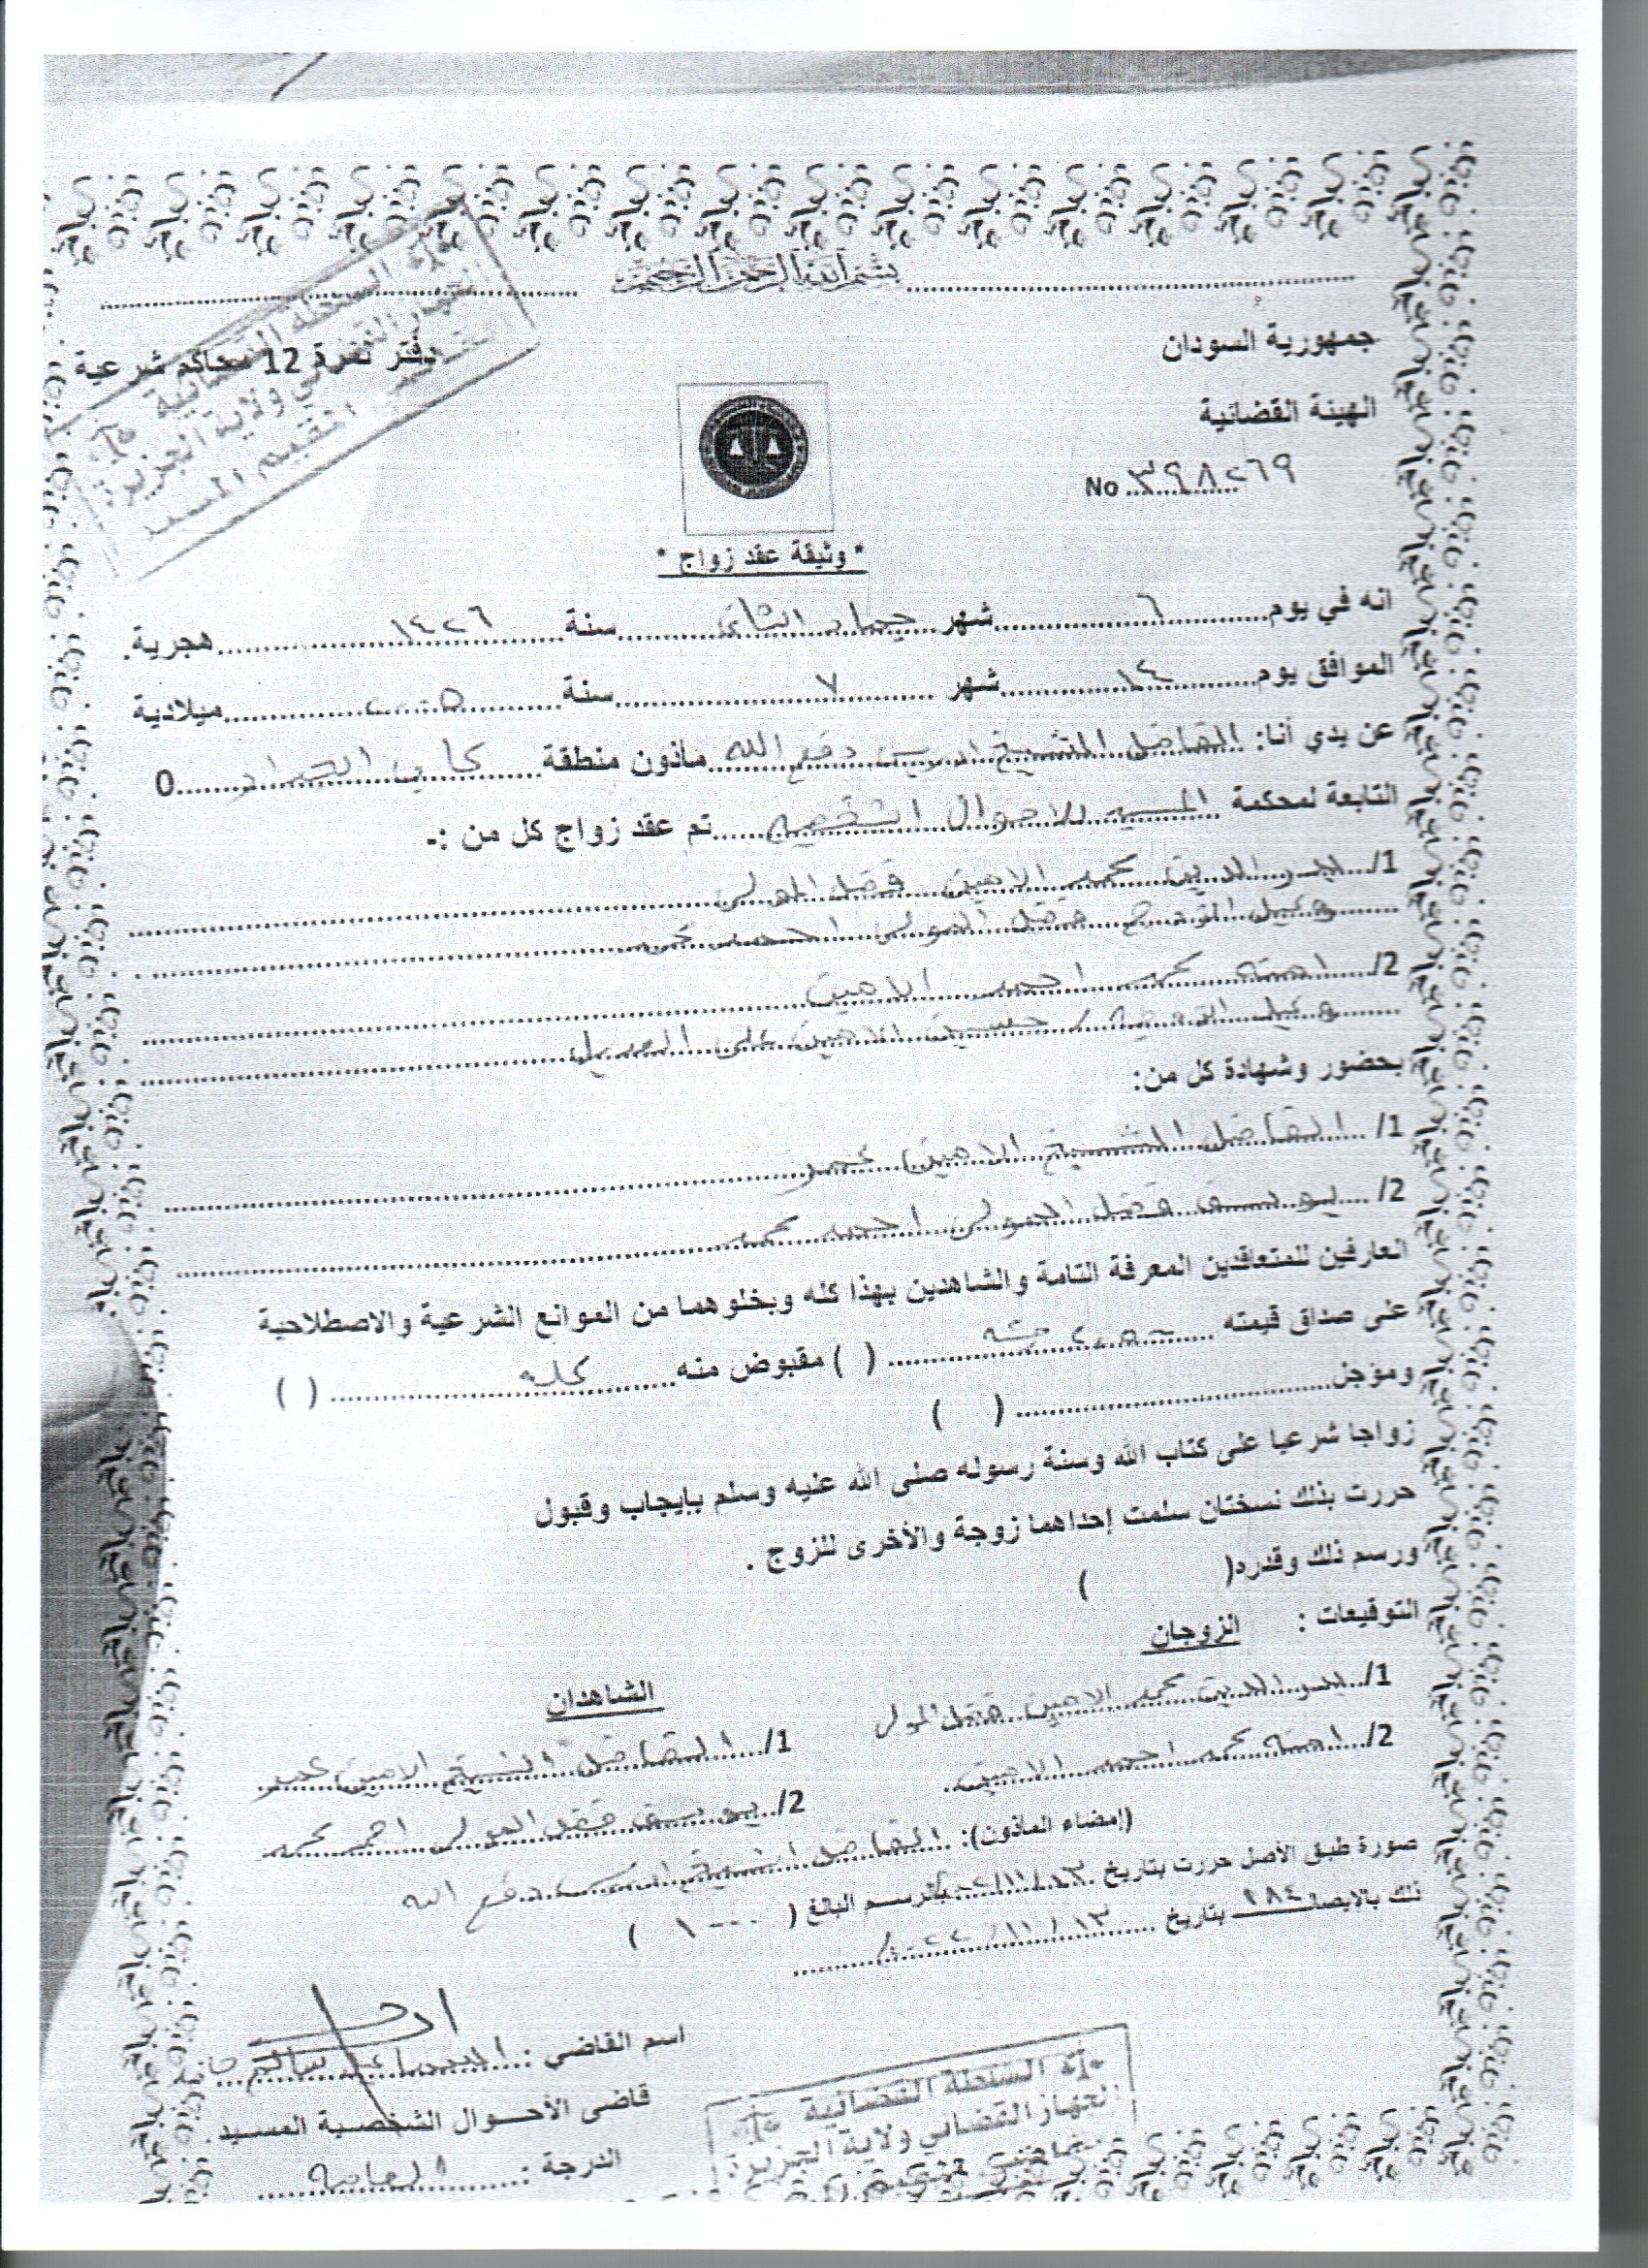 بسم الله الرحمن الرحيم
جمهورية السودان
دفتر نمرة 12 محاكم شرعية
الهيئة القضائية
No ٣٩٨٢٦٩
السلطة القضائية
الجهاز القضائي ولاية الجزيرة
المسيد
* وثيقة عقد زواج *
انه في يوم ٦ شهر جماد الثاني سنة ١٤٢٦ هجرية.
الموافق يوم ١٤ شهر ٧ سنة ٢٠٠٥ ميلادية
عن يدي أنا: الفاضل الشيخ ادريس دفع الله مأذون منطقة 0
التابعة لمحكمة المسيد للاحوال الشخصيه تم عقد زواج كل من :-
1/ بدر الدين محمد الامين فضل المولى
وكيل الزوج فضل المولى احمد محمد
2/ امنه محمد احمد الامين
وكيل الزوجه / حسين الامين على
بحضور وشهادة كل من:
1/ الفاضل الشيخ الامين محمد
2/ يوسف فضل المولى احمد محمد
العارفين للمتعاقدين المعرفة التامة والشاهدين بهذا كله وبخلوهما من الموانع الشرعية والاصطلاحية
على صداق قيمته جنيه ( ) مقبوض منه كله ( )
ومؤجل ( )
زواجا شرعيا على كتاب الله وسنة رسوله صلى الله عليه وسلم بإيجاب وقبول
حررت بذلك نسختان سلمت إحداهما زوجة والأخرى للزوج .
ورسم ذلك وقدرد( )
التوقيعات : الزوجان
الشاهدان
1/ بدر الدين محمد الامين فضل المولى
1/ الفاضل الشيخ الامين محمد
2/ امنه محمد احمد الامين
2/ يوسف فضل المولى احمد محمد
(إمضاء المأذون): الفاضل الشيخ ادريس دفع الله
صورة طبق الأصل حررت بتاريخ ١٣/١١/٢٠٢٢ برسم البالغ ( ١٠٠٠ )
ذلك بالايصال ٢٨٤ بتاريخ ١٣/١١/٢٠٢٢
اسم القاضي : سالم
قاضى الأحوال الشخصية المسيد
الدرجة : العامه
السلطة القضائية
الجهاز القضائي ولاية الجزيرة